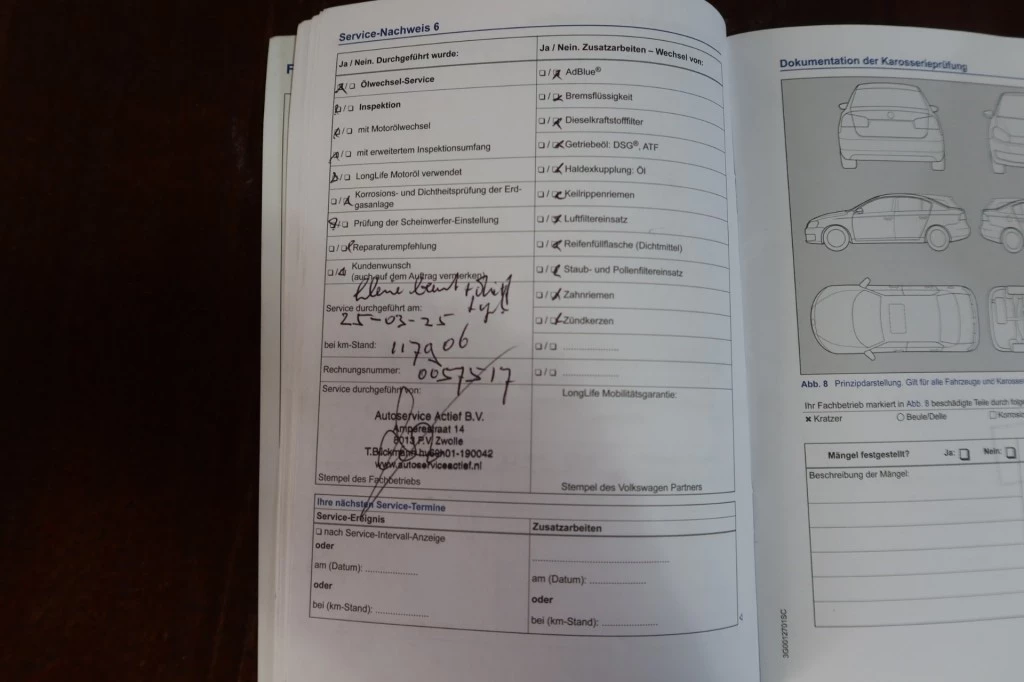 Service-Nachweis 6
Ja / Nein. Durchgeführt wurde:
Ölwechsel-Service
Inspektion
mit Motorölwechsel
mit erweitertem Inspektionsumfang
LongLife Motoröl verwendet
Korrosions- und Dichtheitsprüfung der Erd-
gasanlage
Prüfung der Scheinwerfer-Einstellung
Reparaturempfehlung
Kundenwunsch
(auch auf dem Auftrag vermerken)
Kleine beurt
Service durchgeführt am:
25-03-25
bei km-Stand: 117906
Rechnungsnummer: 0057517
Service durchgeführt von:
Autoservice Actief B.V.
Ampèrestraat 14
Zwolle
www.autoserviceactief.nl
Stempel des Fachbetriebs
Ja / Nein. Zusatzarbeiten – Wechsel von:
AdBlue®
Bremsflüssigkeit
Dieselkraftstofffilter
Getriebeöl: DSG®, ATF
Haldexkupplung: Öl
Keilrippenriemen
Luftfiltereinsatz
Reifenfüllflasche (Dichtmittel)
Staub- und Pollenfiltereinsatz
Zahnriemen
Zündkerzen
LongLife Mobilitätsgarantie:
Stempel des Volkswagen Partners
Ihre nächsten Service-Termine
Service-Ereignis
nach Service-Intervall-Anzeige
oder
am (Datum):
oder
bei (km-Stand):
Zusatzarbeiten
am (Datum):
oder
bei (km-Stand):
Dokumentation der Karosserieprüfung
Abb. 8 Prinzipdarstellung. Gilt für alle Fahrzeuge und
Ihr Fachbetrieb markiert in Abb. 8 beschädigte Teile durch
Kratzer Beule/Delle
Mängel festgestellt? Ja: Nein:
Beschreibung der Mängel:
3G0012701SC